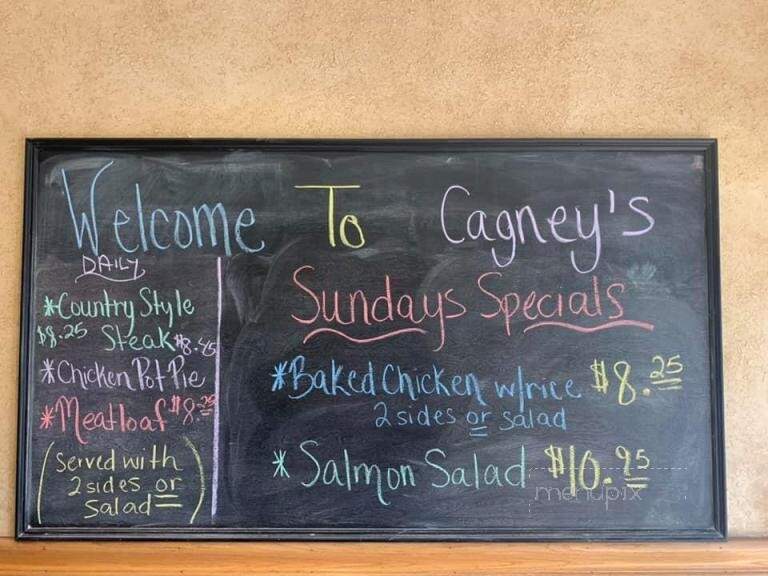 Welcome To Cagney's
DAILY
*Country Style
$8.25 Steak
$8.45
*Chicken Pot Pie
*Meatloaf $8.25
(Served with
2 sides or
Salad)
Sundays Specials
*Baked Chicken w/rice $8.25
2 sides or salad
* Salmon Salad $10.95
menupix